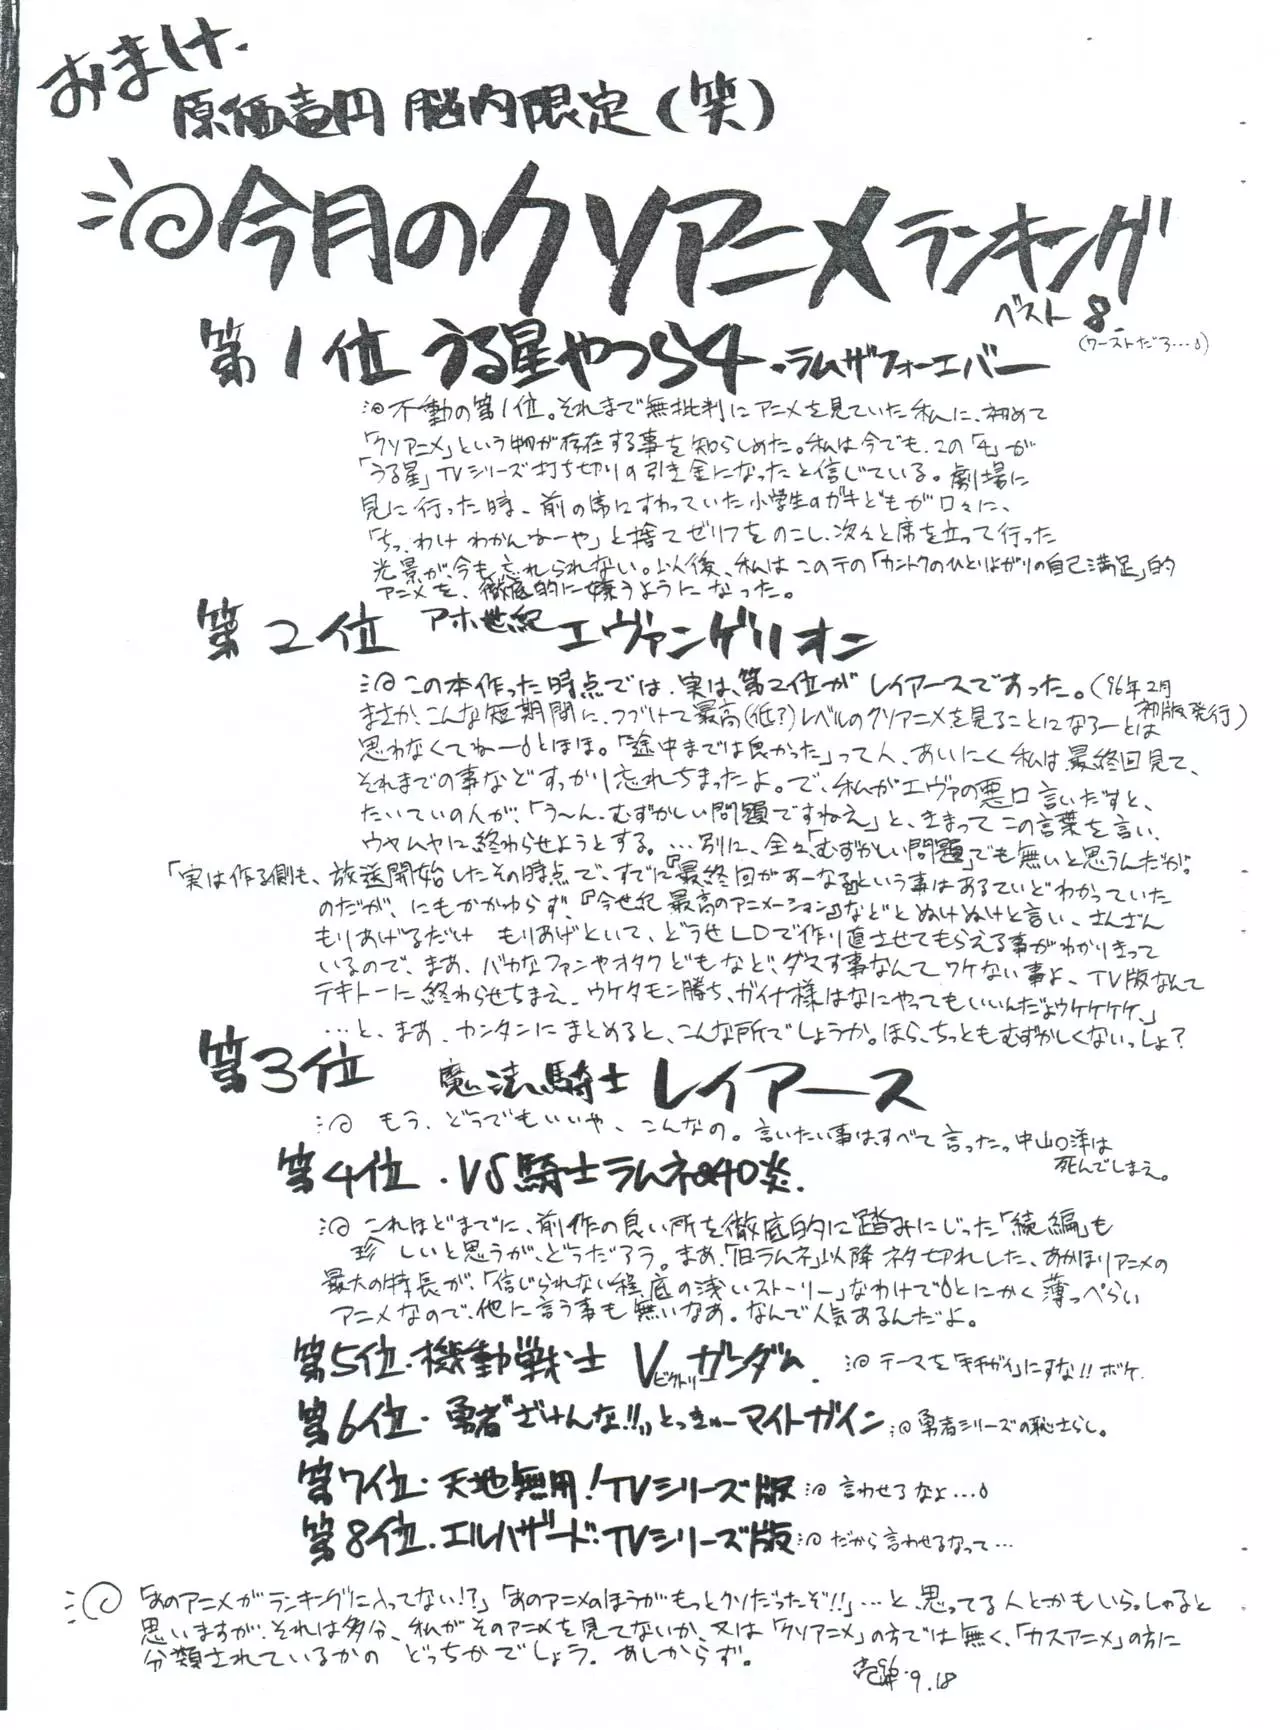 おまけ.
原価壱円 脳内限定(笑)
今月のクソアニメランキング
ベスト8.
(ワーストだろ…)
第1位 うる星やつら4・ラムザフォーエバー
不動の第1位。それまで無批判にアニメを見ていた私に、初めて
「クソアニメ」という物が存在する事を知らしめた。私は今でも、この「4」が
「うる星」TVシリーズ打ち切りの引き金になったと信じている。劇場に
見に行った時、前の席にすわっていた小学生のガキどもが口々に、
「ちっ、わけわかんねーや」と捨てゼリフをのこし、次々と席を立って行った
光景が、今も忘れられない。以後、私はこの手の「カントクのひとりよがりの自己満足」的
アニメを、徹底的に嫌うようになった。
第2位 アホ世紀エヴァンゲリオン
この本作った時点では、実は、第2位がレイアースであった。('96年2月
初版発行)
まさか、こんな短期間に、つづけて最高(低?)レベルのクソアニメを見ることになろーとは
思わなくてねーとほほ。「途中までは良かった」って人、あいにく私は最終回見て、
それまでの事などすっかり忘れちまったよ。で、私がエヴァの悪口言いだすと、
たいていの人が、「う〜ん、むずかしい問題ですねえ」と、きまってこの言葉を言い、
ウヤムヤに終わらせようとする。…別に、全々「むずかしい問題」でも無いと思うんだが。
「実は作る側も、放送開始したその時点で、すでに『最終回があーなる』という事はあるていどわかっていた
のだが、にもかかわらず、『今世紀最高のアニメーション』などとぬけぬけと言い、さんざん
もりあげるだけ もりあげといて、どうせLDで作り直させてもらえる事がわかりきって
いるので、まあ、バカなファンやオタクどもなど、ダマす事なんてワケない事よ、TV版なんて
テキトーに終わらせちまえ、ウケタモン勝ち、ガイナ様はなにやってもいいんだようケケケケ、」
…と、まあ、カンタンにまとめると、こんな所でしょうか。ほら、ちっともむずかしくないっしょ?
第3位 魔法騎士 レイアース
もう、どうでもいいや、こんなの。言いたい事は、すべて言った。中山○洋は
死んでしまえ。
第4位・VS騎士ラムネ&40炎.
これほどまでに、前作の良い所を徹底的に踏みにじった「続編」も
珍しいと思うが、どうだろう。まあ、「旧ラムネ」以降ネタ切れした、あかほりアニメの
最大の特長が、「信じられない程、底の浅いストーリー」なわけでとにかく薄っぺらい
アニメなので、他に言う事も無いなあ。なんで人気あるんだよ。
第5位・機動戦士 Vガンダム. テーマを「キチガイ」にすな!!ボケ.
ビクトリー
第6位・勇者"ざけんな!!"とっきゅーマイトガイン 勇者シリーズの恥さらし。
第7位・天地無用!TVシリーズ版 言わせるなよ…
第8位.エルハザード・TVシリーズ版 だから言わせるなって…
「あのアニメがランキングに入ってない!?」「あのアニメのほうがもっとクソだったぞ!!」…と、思ってる人とかもいらっしゃると
思いますが、それは多分、私がそのアニメを見てないか、又は「クソアニメ」の方では無く、「カスアニメ」の方に
分類されているかの どっちかでしょう。あしからず。
9.18